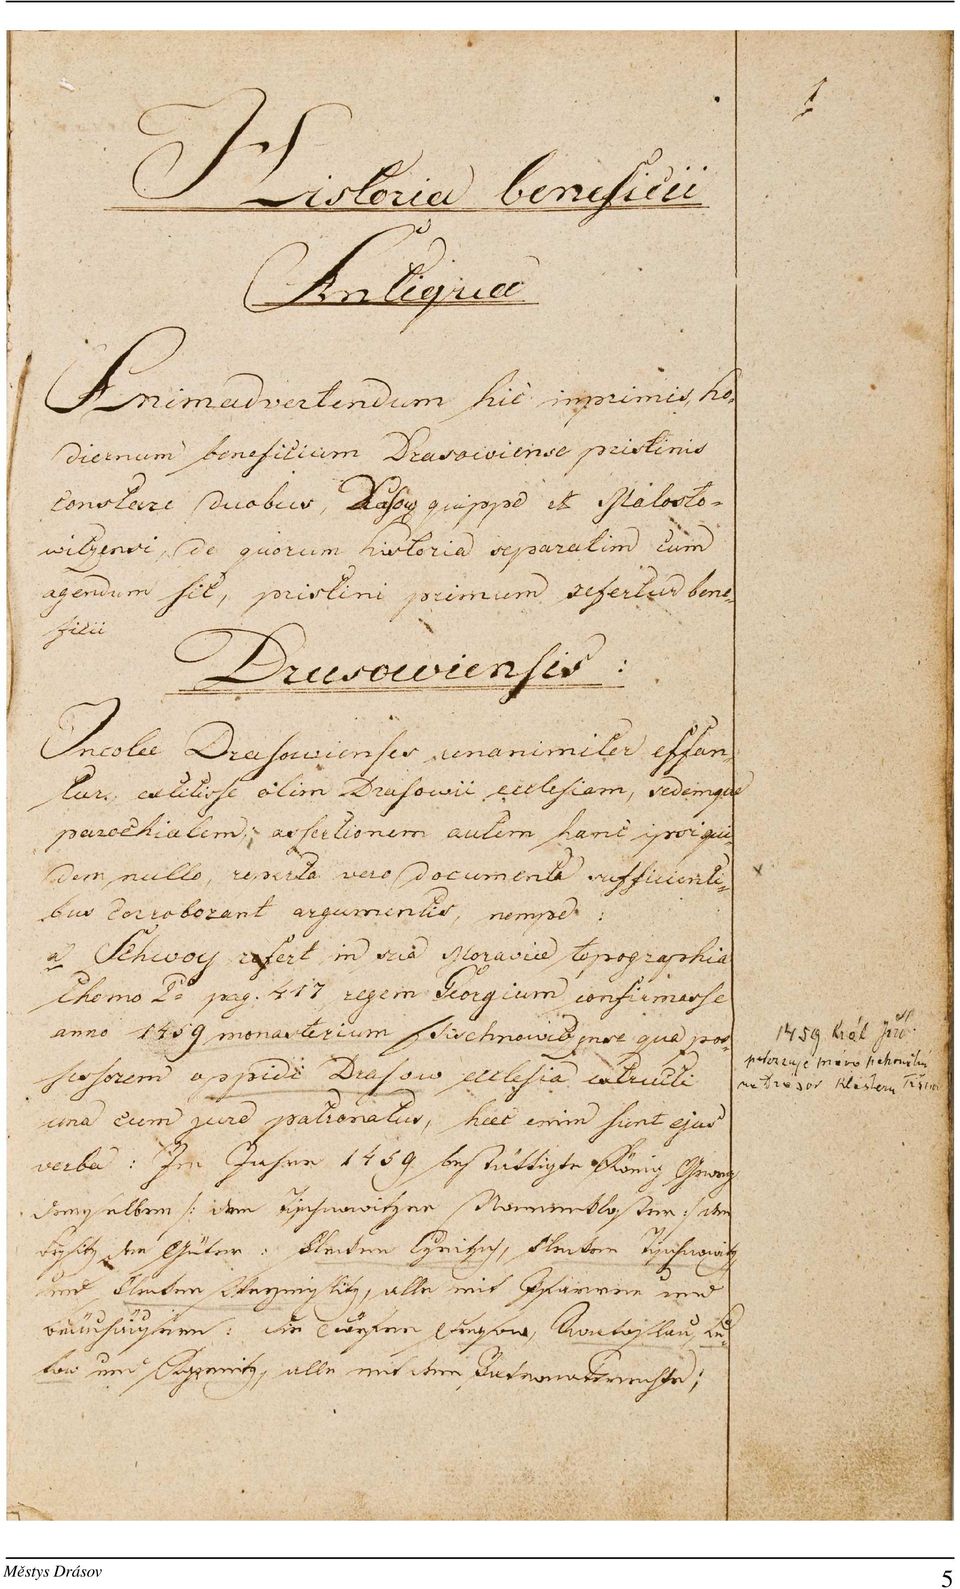 1
Historia beneficii
Antiqua
Animadvertendum hic inprimis, ho-
diernum beneficium Drasowiense pristinis
constare duobus, Drasow quippe et Malosto-
witzensi, de quorum historia separatim cum
agendum sit, pristini primum refertur bene-
ficii
Drasowiensis:
Incolae Drasowienses unanimiter effan-
tur, extitisse olim Drasowii ecclesiam, sedemque
parochialem; assertionem autem hanc ipsi qui-
dem nullo, reperta vero documenta sufficienti-
bus corroborant argumentis, nempe:
a) Schwoy refert in sua Moraviae topographia
thomo 2º pag. 417 regem Georgium confirmasse
anno 1459 monasterium Tischnowicense qua pos-
sessorem oppidi Drasow ecclesia extructi
una cum jure patronatus, haec enim sunt ejus
verba: Im Jahre 1459 bestättigte König Georg
demselben /: dem Tischnowitzer Nonnenkloster :/ den
Besitz der Güter: Markt
und Markt alle mit Pfarren und
: die Dörfer Drasow,
und alle mit dem Patronatsrechte;
1459 Král Jiří
potvrzuje právo
na Drasov klášteru
Městys Drásov
5